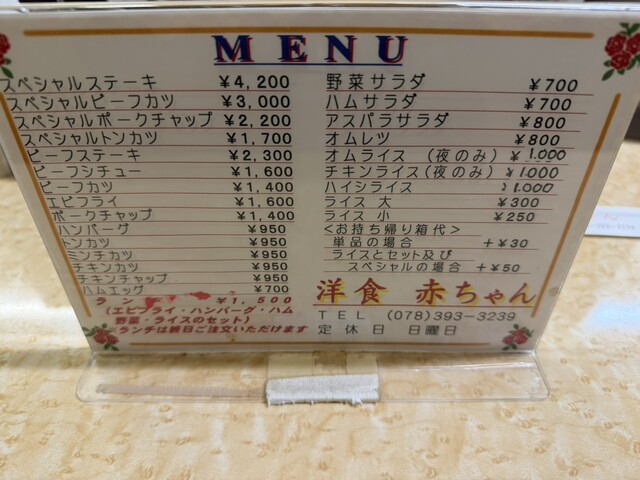 MENU
スペシャルステーキ ¥4,200
スペシャルビーフカツ ¥3,000
スペシャルポークチャップ ¥2,200
スペシャルトンカツ ¥1,700
ビーフステーキ ¥2,300
ビーフシチュー ¥1,600
ビーフカツ ¥1,400
エビフライ ¥1,600
ポークチャップ ¥1,400
ハンバーグ ¥950
トンカツ ¥950
ミンチカツ ¥950
チキンカツ ¥950
チキンチャップ ¥950
ハムエッグ ¥700
ラン ¥1,500
(エビフライ・ハンバーグ・ハム
野菜・ライスのセット)
ランチは終日ご注文いただけます
野菜サラダ ¥700
ハムサラダ ¥700
アスパラサラダ ¥800
オムレツ ¥800
オムライス (夜のみ) ¥1.000
チキンライス(夜のみ) ¥1.000
ハイシライス 1.000
ライス 大 ¥300
ライス 小 ¥250
<お持ち帰り箱代>
単品の場合 +¥30
ライスとセット及び
スペシャルの場合 +¥50
洋食 赤ちゃん
TEL (078)393-3239
定休日 日曜日